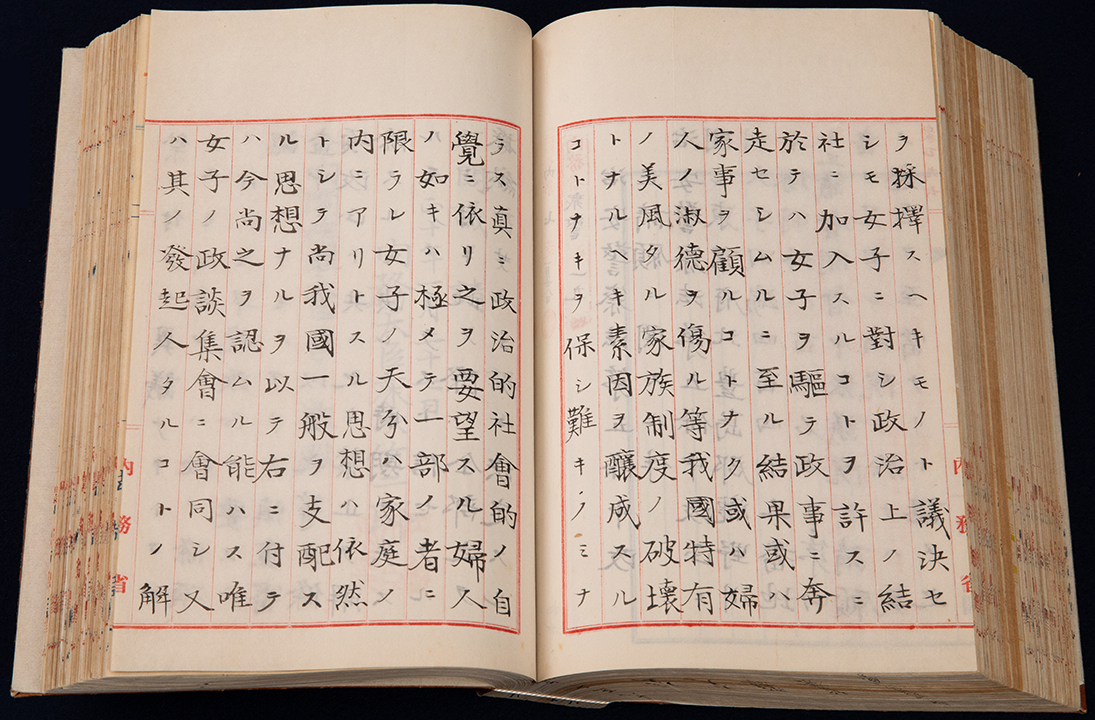 ヲ採擇スヘキモノト議決セ
シモ女子ニ對シ政治上ノ結
社ニ加入スルコトヲ許スニ
於テハ女子ヲ驅テ政事ニ奔
走セシムルニ至ル結果或ハ
家事ヲ顧ルコトナク或ハ婦
人ノ淑德ヲ傷ル等我國特有
ノ美風タル家族制度ノ破壊
トナルヘキ素因ヲ釀成スル
コトナキヲ保シ難キノミナ
ラス真ニ政治的社會的ノ自
覺ニ依リ之ヲ要望スル婦人
ノ如キハ極メテ一部ノ者ニ
限ラレ女子ノ天分ハ家庭ノ
内ニアリトスル思想ハ依然
トシテ尚我國一般ヲ支配ス
ル思想ナルヲ以テ右ニ付テ
ハ今尚之ヲ認ムル能ハス唯
女子ノ政談集會ニ會同シ又
ハ其ノ發起人タルコトノ解
内務省